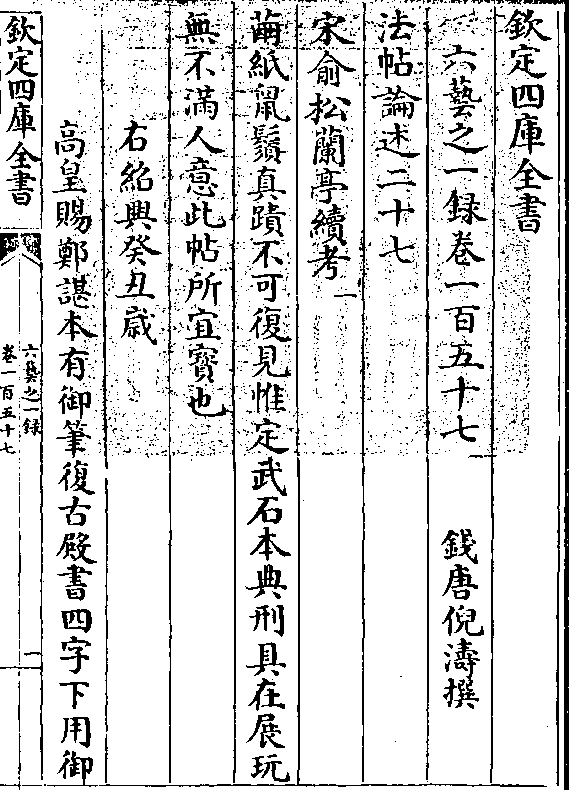 欽定四庫全書
六藝之一録卷一百五十七
錢唐倪濤撰
法帖論述二十七
宋俞松蘭亭續考一
繭紙鼠鬚真蹟不可復見惟定武石本典刑具在展玩
無不滿人意此帖所宜寶也
右紹興癸丑歲
高皇賜鄭諶本有御筆復古殿書四字下用御
欽定四庫全書
六藝之一録
卷一百五十七
一